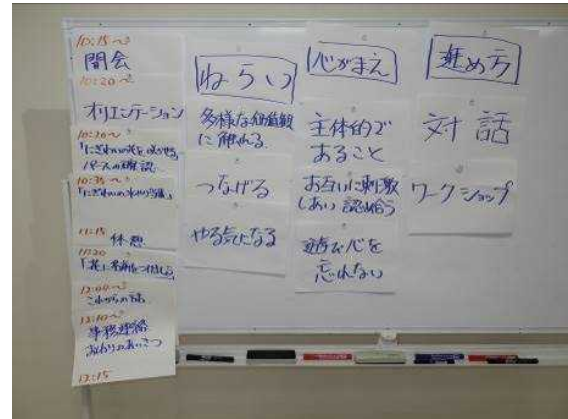 10:15~
開会
10:20~
オリエンテーション
10:30~
「にぎわいの花を咲かせる
の確認
10:35~
「にぎわいの
11:15
休憩
11:20
「花に名前をつけましょう」
12:00~
これからの
12:10~
事務連絡
おわりのあいさつ
12:15
ねらい
多様な価値観
に触れる
つなげる
やる気になる
心がまえ
主体的で
あること
お互いに刺激
しあい 認め合う
遊び心を
忘れない
進め方
対話
ワークショップ